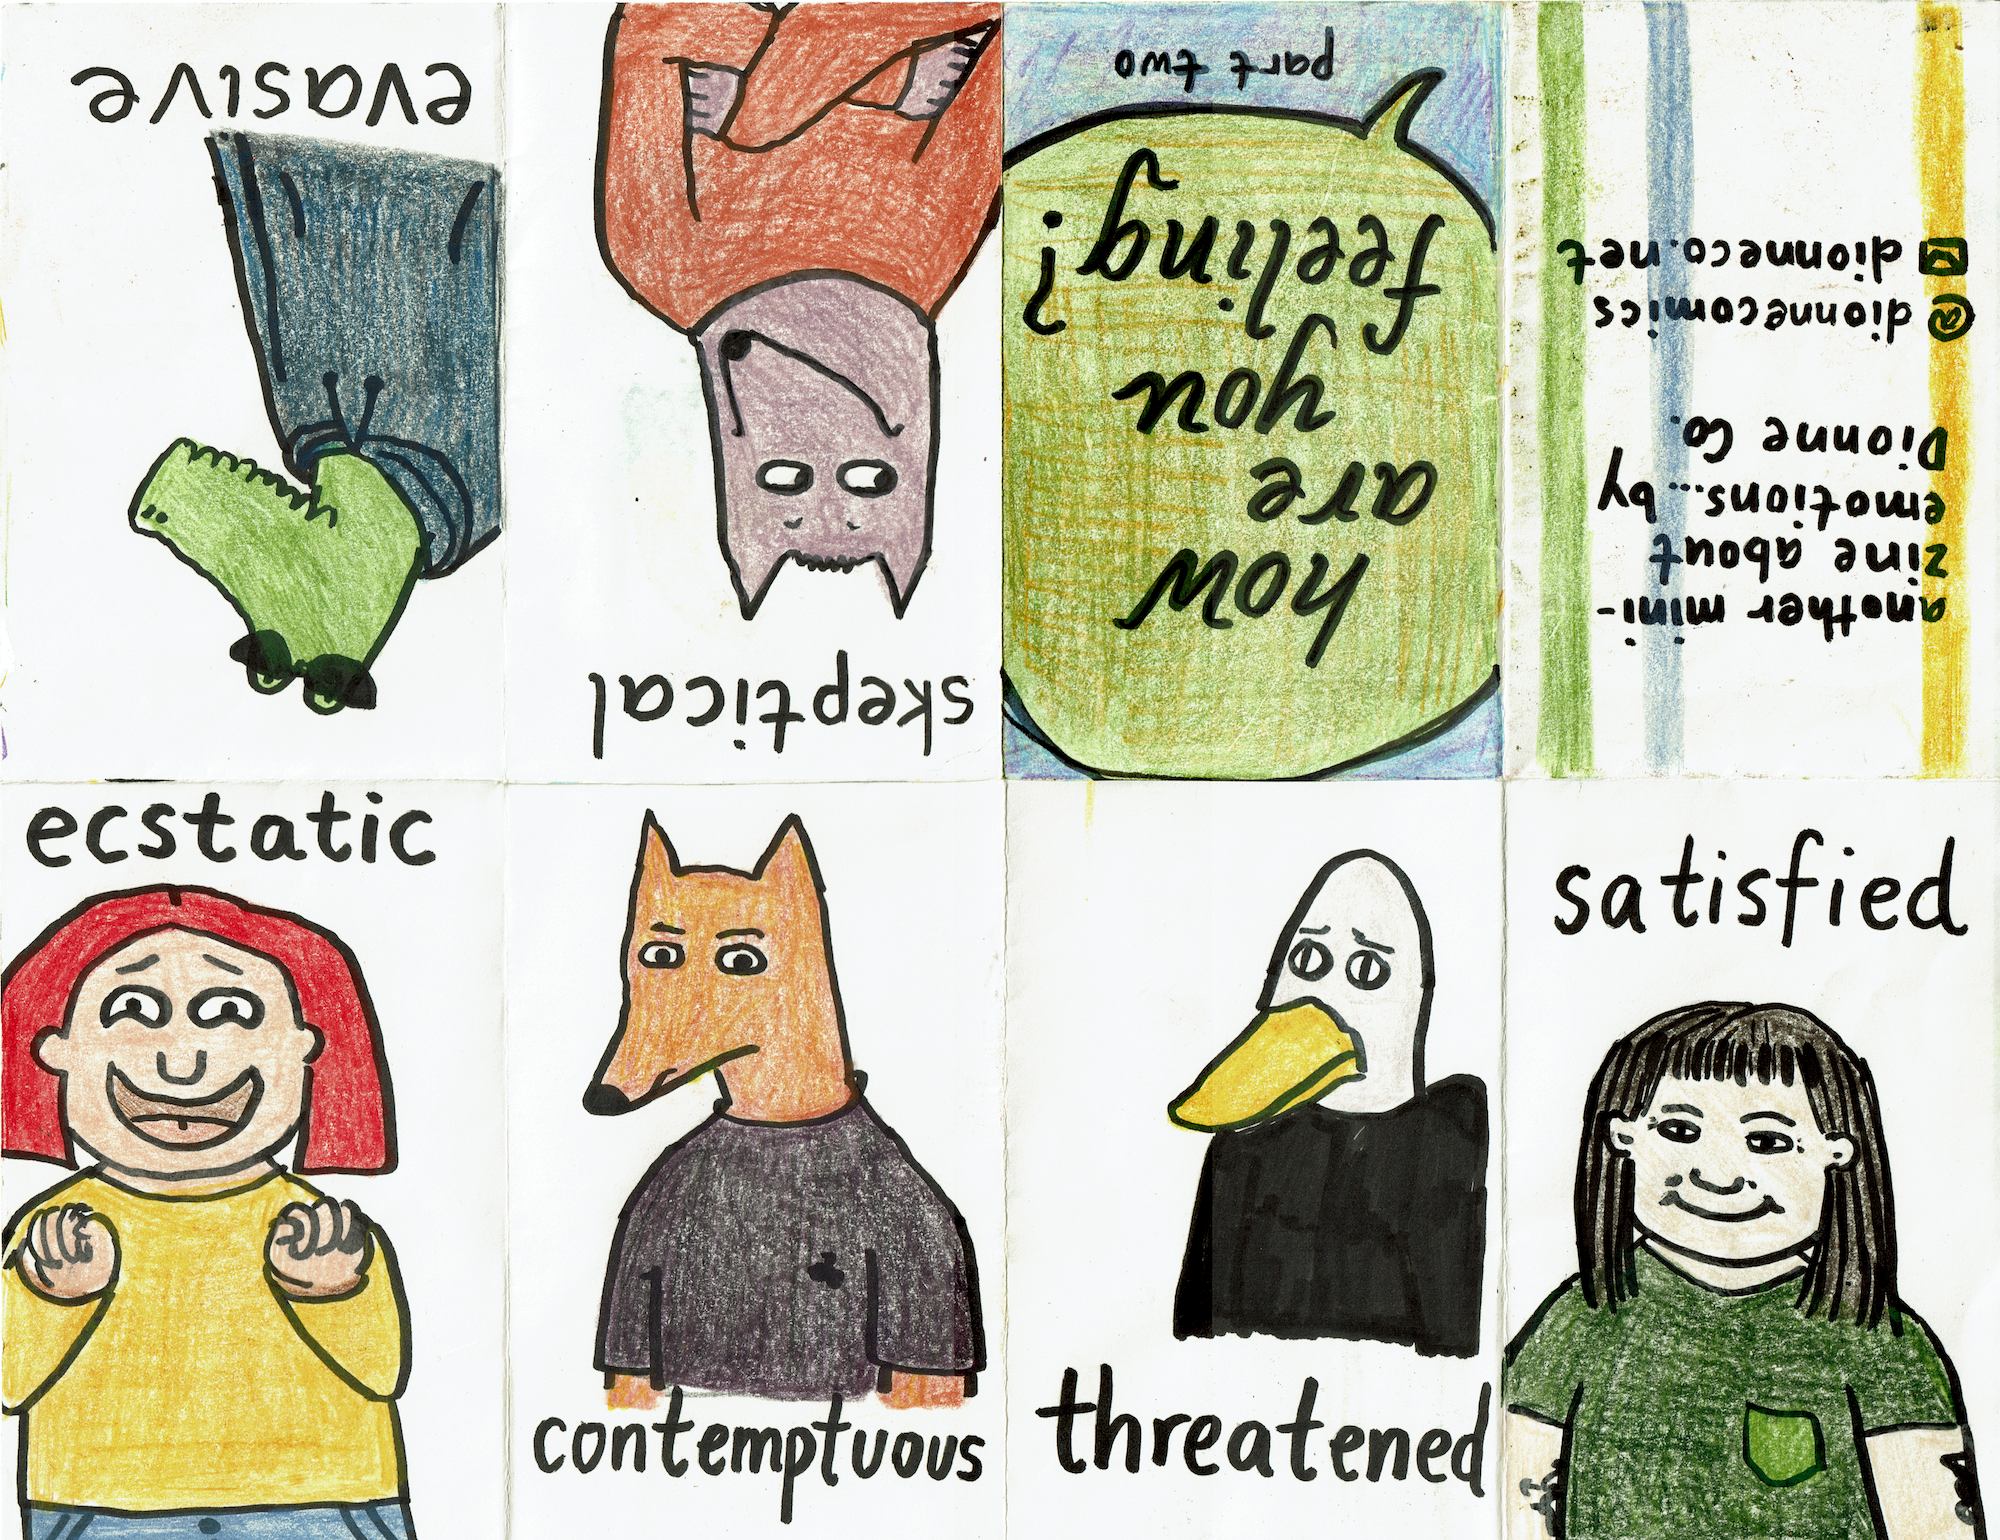 part two
how
are
you
feeling?
another mini-
zine about
emotions...by
Dionne Co.
@dionnecomics
dionneco.net
evasive
skeptical
ecstatic
contemptuous
threatened
satisfied